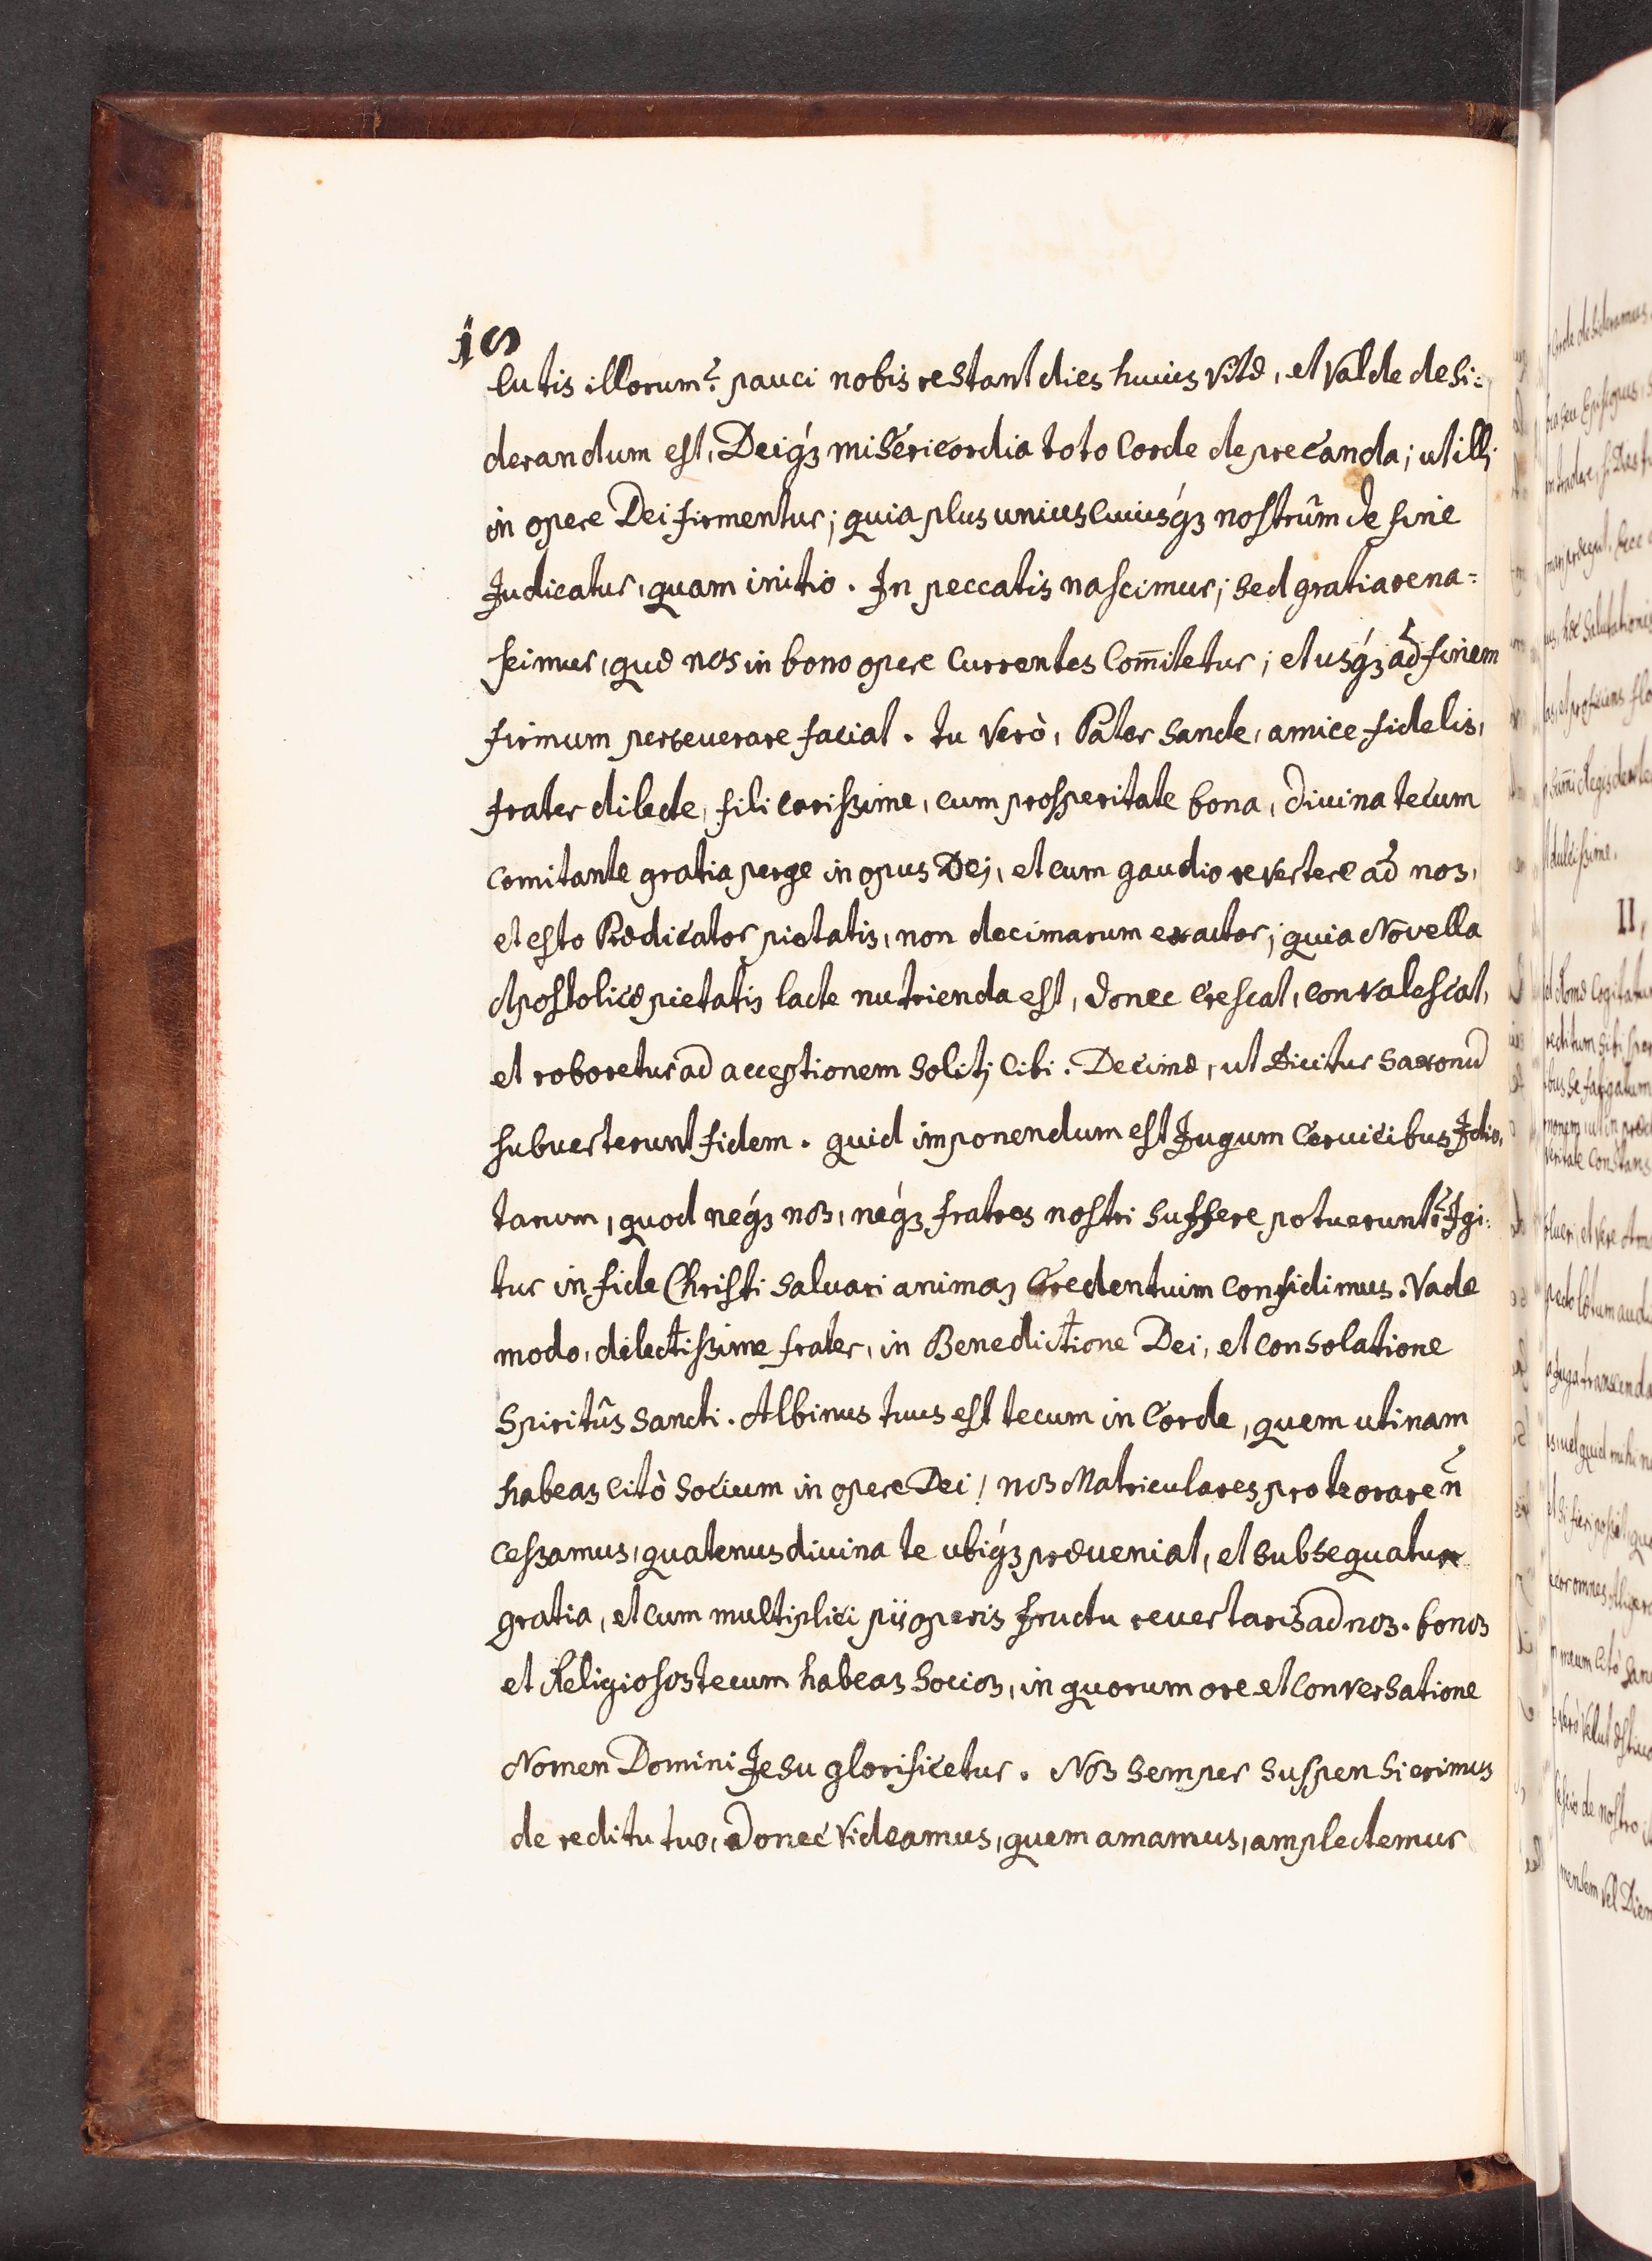 lutis illorum? pauci nobis restant dies huius vitæ, et valde desi=
derandum est, Deiq́ꝫ misericordia toto corde deprecanda; ut illi
in opere Dei firmentur; quia plus uniuscuiusq́ꝫ nostrûm de fine
Judicatur, quam initio. In peccatis nascimur; sed gratia rena=
scimur, quæ nos in bono opere currentes com̄itetur; et usq́ꝫ ad finem
firmum perseuerare faciat. tu verò, Pater sancte, amice fidelis,
frater dilecte, fili carissime, cum prosperitate bona, divina tecum
comitante gratia perge in opus Dej, et cum gaudio revertere ad nos,
et esto Prædicator pietatis, non decimarum exactor; quia Novella
Apostolicæ pietatis lacte nutrienda est, donec crescat, convalescat,
et roboretur ad acceptionem solitj cibi. Decimæ, ut dicitur saxonū
subuerterunt fidem. quid imponendum est Jugum cervicibus Idio,
tarum, quod neq́ꝫ nos, neq́ꝫ fratres nostri suffere potuerunt? Igi=
tur in fide Christi saluari animas Credentium confidimus. Vade
modo, dilectissime frater, in Benedictione Dei, et consolatione
Spiritûs sancti. Albinus tuus est tecum in corde, quem utinam
habeas citò socium in opere Dei! nos Matriculares pro te orare n̄
cessamus, quatenus divina te ubiq́ꝫ præveniat, et subsequatur
gratia, et cum multiplici pii operis fructu revertaris ad nos. bonos
et Religiosos tecum habeas socios, in quorum ore et conversatione
Nomen Domini Jesu glorificetur. Nos semper suspensi erimus
de reditu tuo, donec videamus, quem amamus, amplectemur